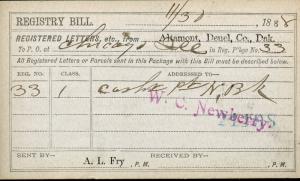 11/30
REGISTRY BILL. 1888
REGISTERED LETTERS, etc., from Altamont, Deuel, Co., Dak.
To P. O. at Chicago Ills in Reg. P'kge No. 33
All Registered Letters or Parcels sent in this Package with this Bill must be described below.
REG. NO. CLASS. ADDRESSED TO
33 1 Cash N. Bk
W. C. Newberry,
SENT BY RECEIVED BY
A. L. Fry , P. M. , P. M.